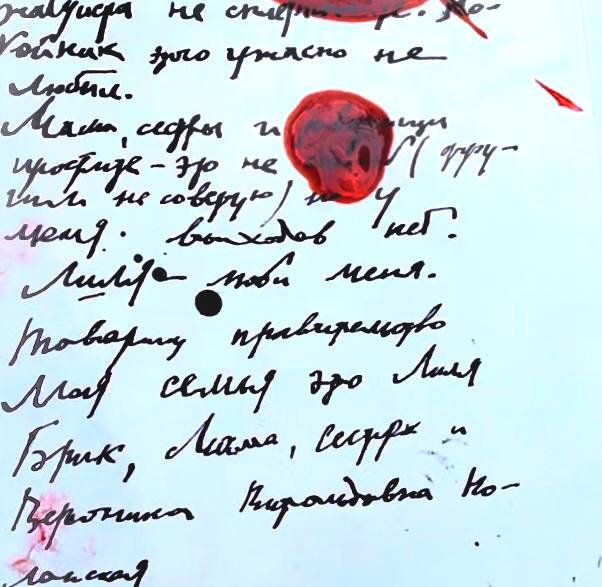 жалуйста не сплетничайте. По-
койник этого ужасно не
любил.
Мама, сестры и
простите – это не б (дру-
гим не советую) но у
меня выходов нет.
Лиля – люби меня.
Товарищ правительство
Моя семья это Лиля
Брик, Мама, сестры и
Вероника Витольдовна По-
лонская